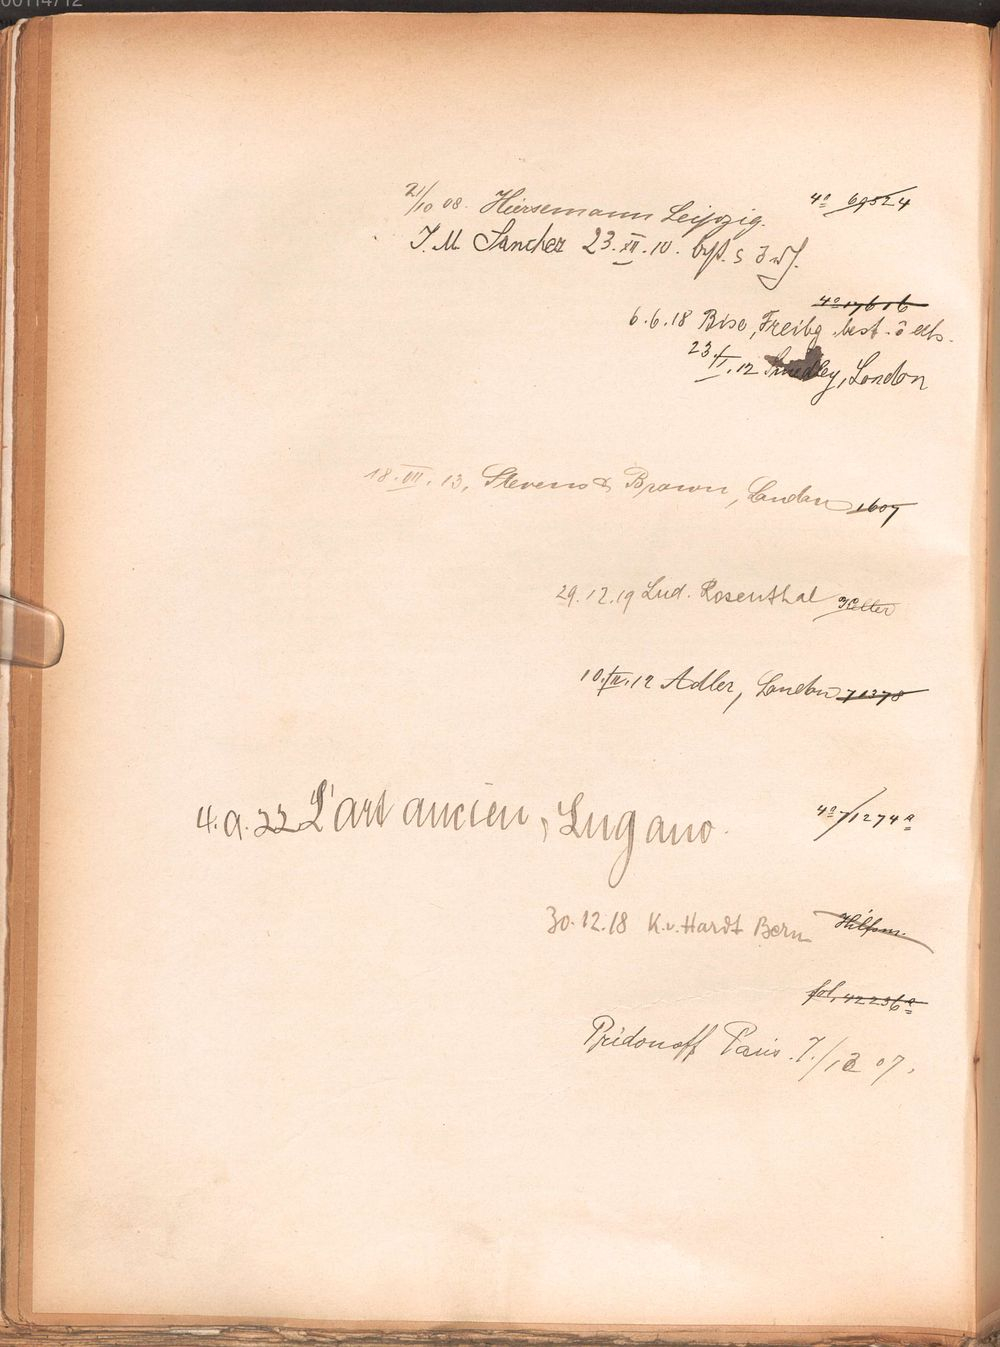 00114712
21/10 08. Hiersemann Leipzig. 4° 69524
J. M. Sanchez 23.XII.10.
4° 17616
6.6.18 Bise, Freibg. best.
23. 12 Smedley, London
18.VII.13, Stevens & Brown, London 1607
29.12.19 Lud. Rosenthal
10. 12 Adler, London 71378
4.a.22 L'art ancien, Lugano. 4° 1274a
30.12.18 K.v. Hardt Bern Hilfsm.
fol. 42236a
Pridonoff Paris. 7./12 07.